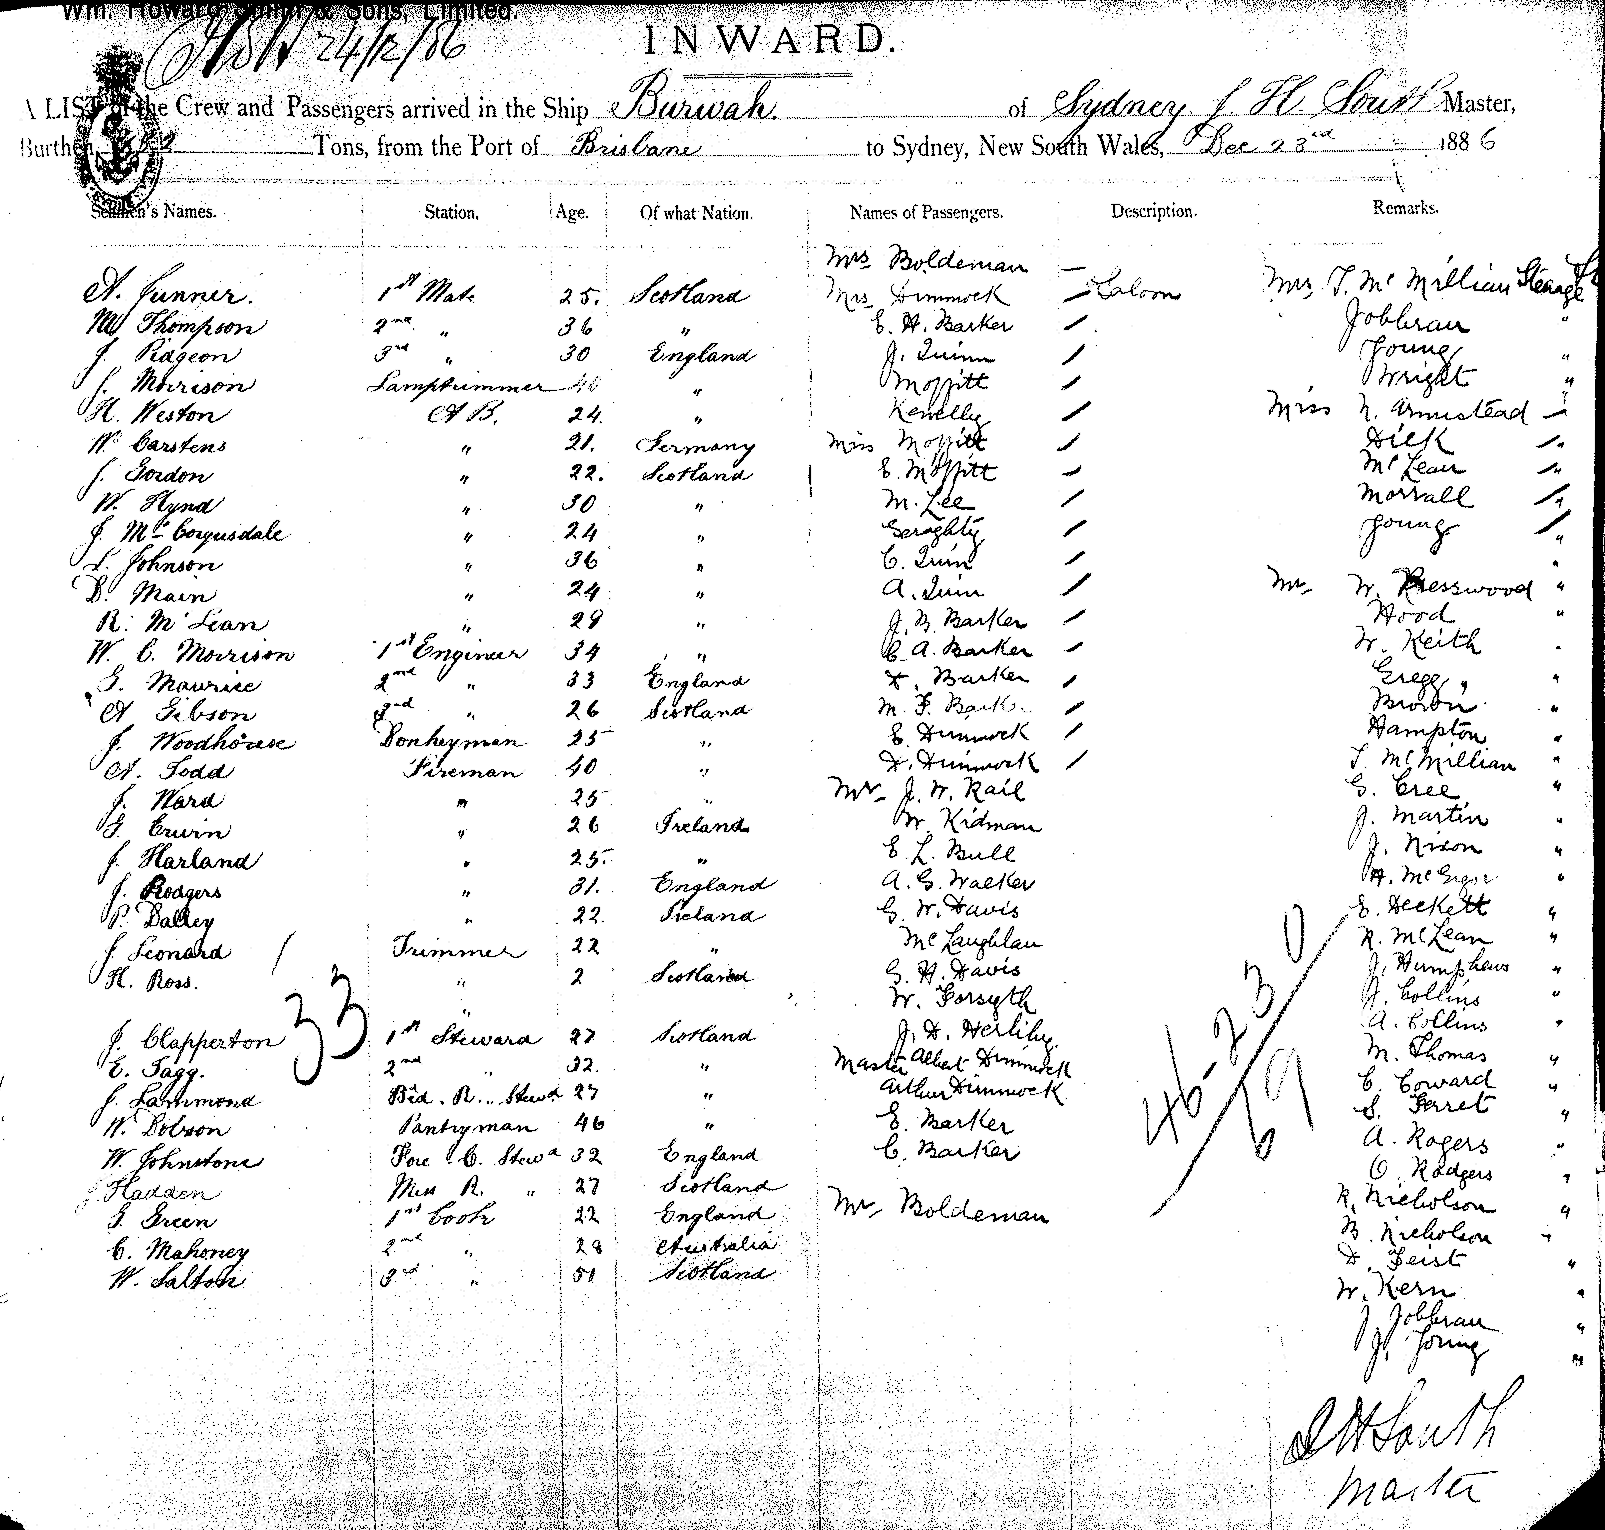 Wm. Howard Smith & Sons, Limited.
24/12/86
INWARD.
A LIST of the Crew and Passengers arrived in the Ship Burwah. of Sydney J H South Master,
Burthen, Tons, from the Port of Brisbane to Sydney, New South Wales, Dec 23rd 1886
Seamen's Names. Station. Age. Of what Nation. Names of Passengers. Description. Remarks.
Mrs Boldeman —
A. Gunner. 1st Mate 25. Scotland Mrs Dimmock Saloon Mrs T. McMillian Steerage
W Thompson 2nd " 36 " E. H. Barker Jobbrau "
J. Pidgeon 3rd " 30 England J. Quinn Young "
J. Morrison Lamptrimmer 46 " Moffitt Wright "
H. Weston A B. 24 " Kenelly Miss N. Armistead "
W. Carstens " 21. Germany Miss Moffitt Dick "
J. Gordon " 22. Scotland E. Moffitt McLean "
W. Hynd " 30 " M. Lee Morrall "
J. McCorquodale " 24 " Geraghty Young "
L. Johnson " 36 " C. Quin "
D. Main " 24 " A. Quin Mr. W. Presswood "
R. McLean " 29 " J. B. Barker Hood "
W. C. Morrison 1st Engineer 34 " C. A. Barker W. Keith "
G. Maurice 2nd " 33 England Barker Gregg "
A Gibson 3rd " 26 Scotland M. F. Bark. Brown "
J. Woodhouse Donkeyman 25 " E. Dimmock Hampton "
A. Todd Fireman 40 " D. Dimmock T McMillian "
J. Ward " 25 " Mr. J. W. Rail G. Cree "
G. Erwin " 26 Ireland W. Kidman J. Martin "
J. Harland " 25. " E. L. Bull J. Nixon "
J. Rodgers " 31. England A. G. Walker A. McGrgor "
P. Dalley " 22. Ireland G. W. Davis E. Beckett "
J. Leonard Trimmer 22 " McLaughlan R. McLean "
H. Ross. " 2 Scotland G. H. Davis J. Humphews "
" W. Forsyth J. Collins "
33
J. Clapperton 1st Steward 27 Scotland J. D. Herlihy. A. Collins "
E. Tagg. 2nd " 32. " Master Albert Dimmock M. Thomas "
J. Lammond Bed. R. Stewd 27 " Arthur Dimmock C. Coward "
W. Dobson Pantryman 46 " E. Barker S. Ferret "
W. Johnstone Fore. C. Stewd 32 England C. Barker A. Rogers "
J. Hadden Mess R. " 27 Scotland O. Rodgers "
G. Green 1st Cook 22 England Mr. Boldeman R. Nicholson "
C. Mahoney 2nd " 28 Australia B. Nicholson "
W. Salton 3rd " 51 Scotland D. Feist "
W. Kern "
J Jobbrau "
J. Young "
46-23 0
69
J H South
Master